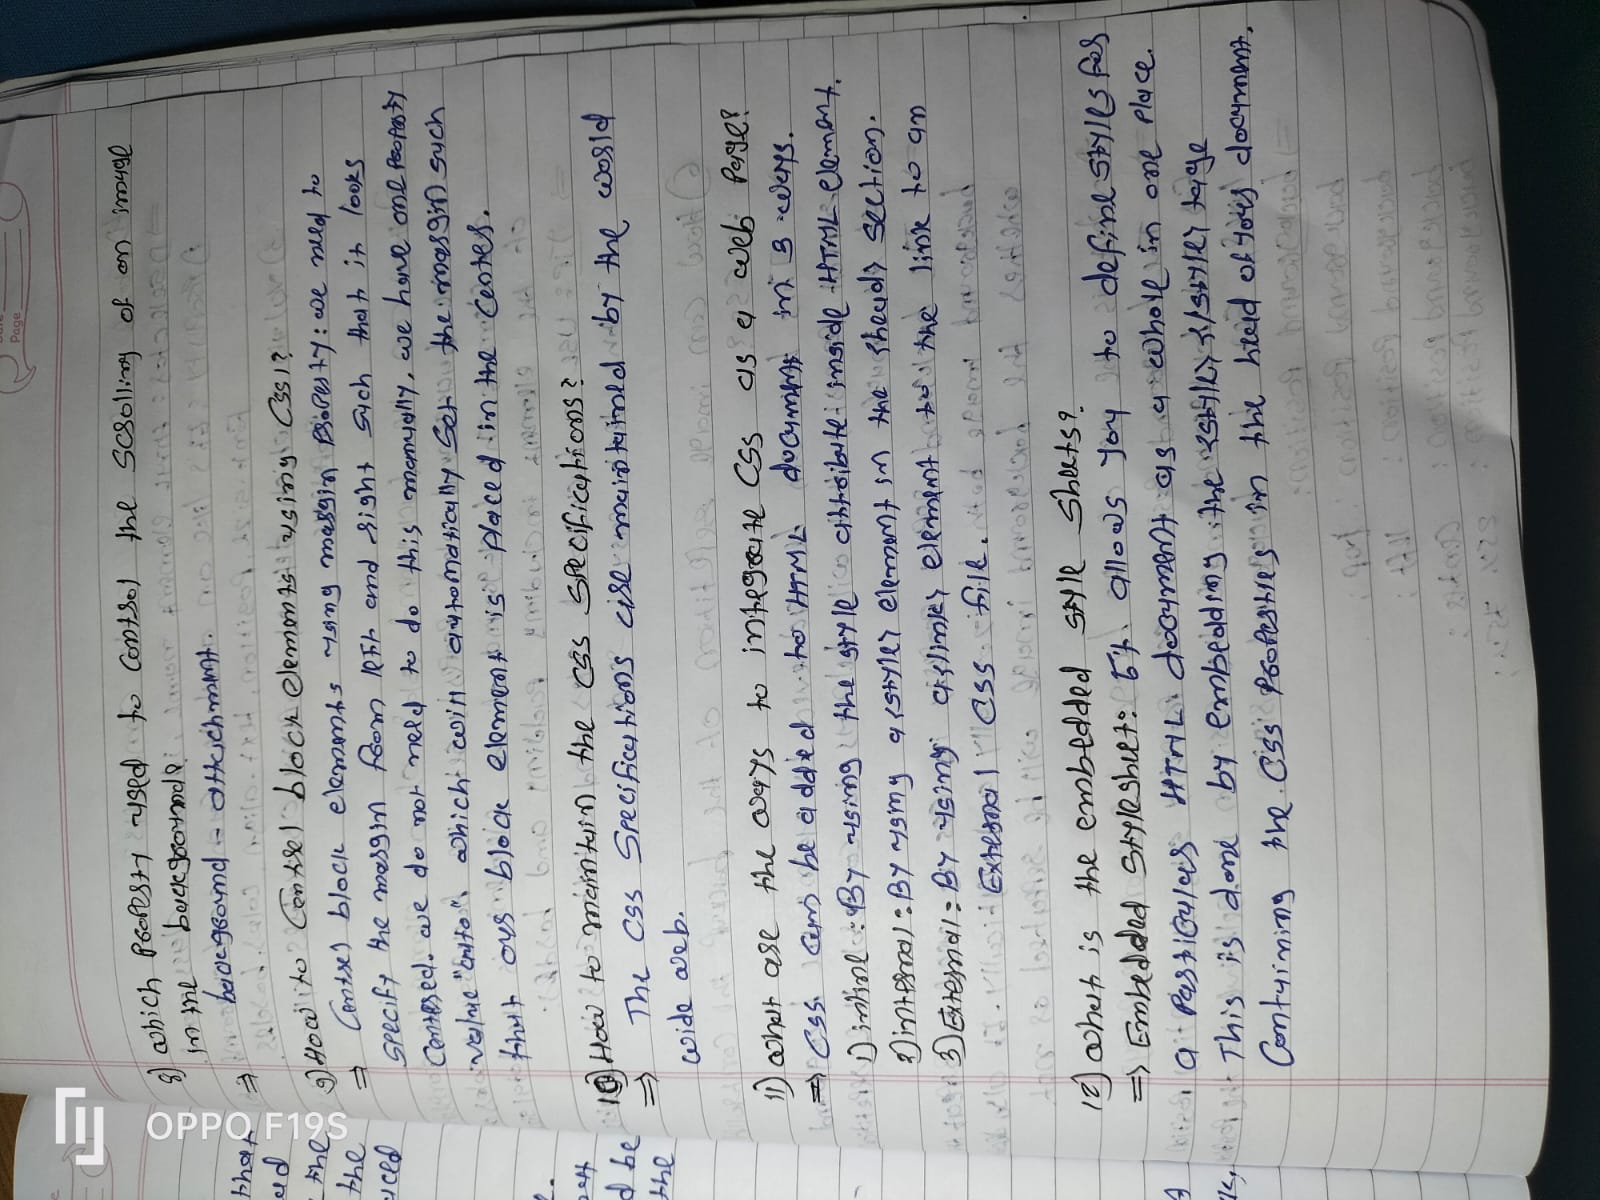 Page
8) which property used to control the scrolling of an image
in the background.
⇒ background - attachment.
9) How to control block elements using CSS1?
⇒ Center block elements using margin property: we need to
specify the margin from left and right such that it looks
Centered. we do not need to do this manually, we have one property
value "auto" which will automatically set the margin such
that our block element is placed in the center.
10) How to maintain the CSS specifications?
⇒ The CSS specifications are maintained by the world
wide web.
11) what are the ways to integrate CSS as a web page?
⇒ CSS can be added to HTML document in 3 ways.
1) inline: By using the style attribute inside HTML element.
2) internal: By using a <style> element in the <head> section.
3) External: By using a <link> element to the link to an
External CSS file.
12) what is the embedded style sheets?
⇒ Embedded stylesheet: It allows you to define styles for
a particular HTML document as a whole in one place.
This is done by embedding the <style></style> tage
Containing the CSS properties in the head of your document.
that
the
the
the
OPPO F19S